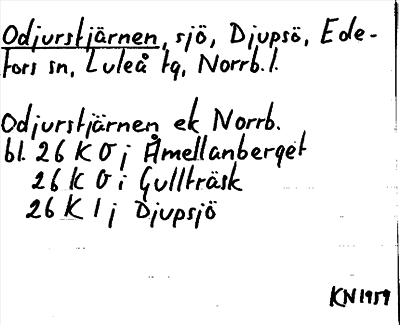 Odjurstjärnen, sjö, Djupsö, Ede-
fors sn, Luleå tg, Norrb.l.
Odjurstjärnen ek Norrb.
bl. 26 K 0 j Åmellanberget
26 K 0 i Gullträsk
26 K 1 j Djupsjö
KN 1959